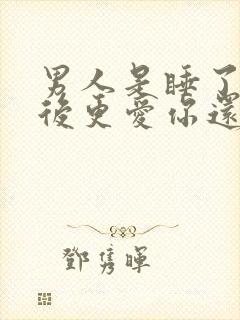 男人是睡了
後更愛你還
鄧雋暉